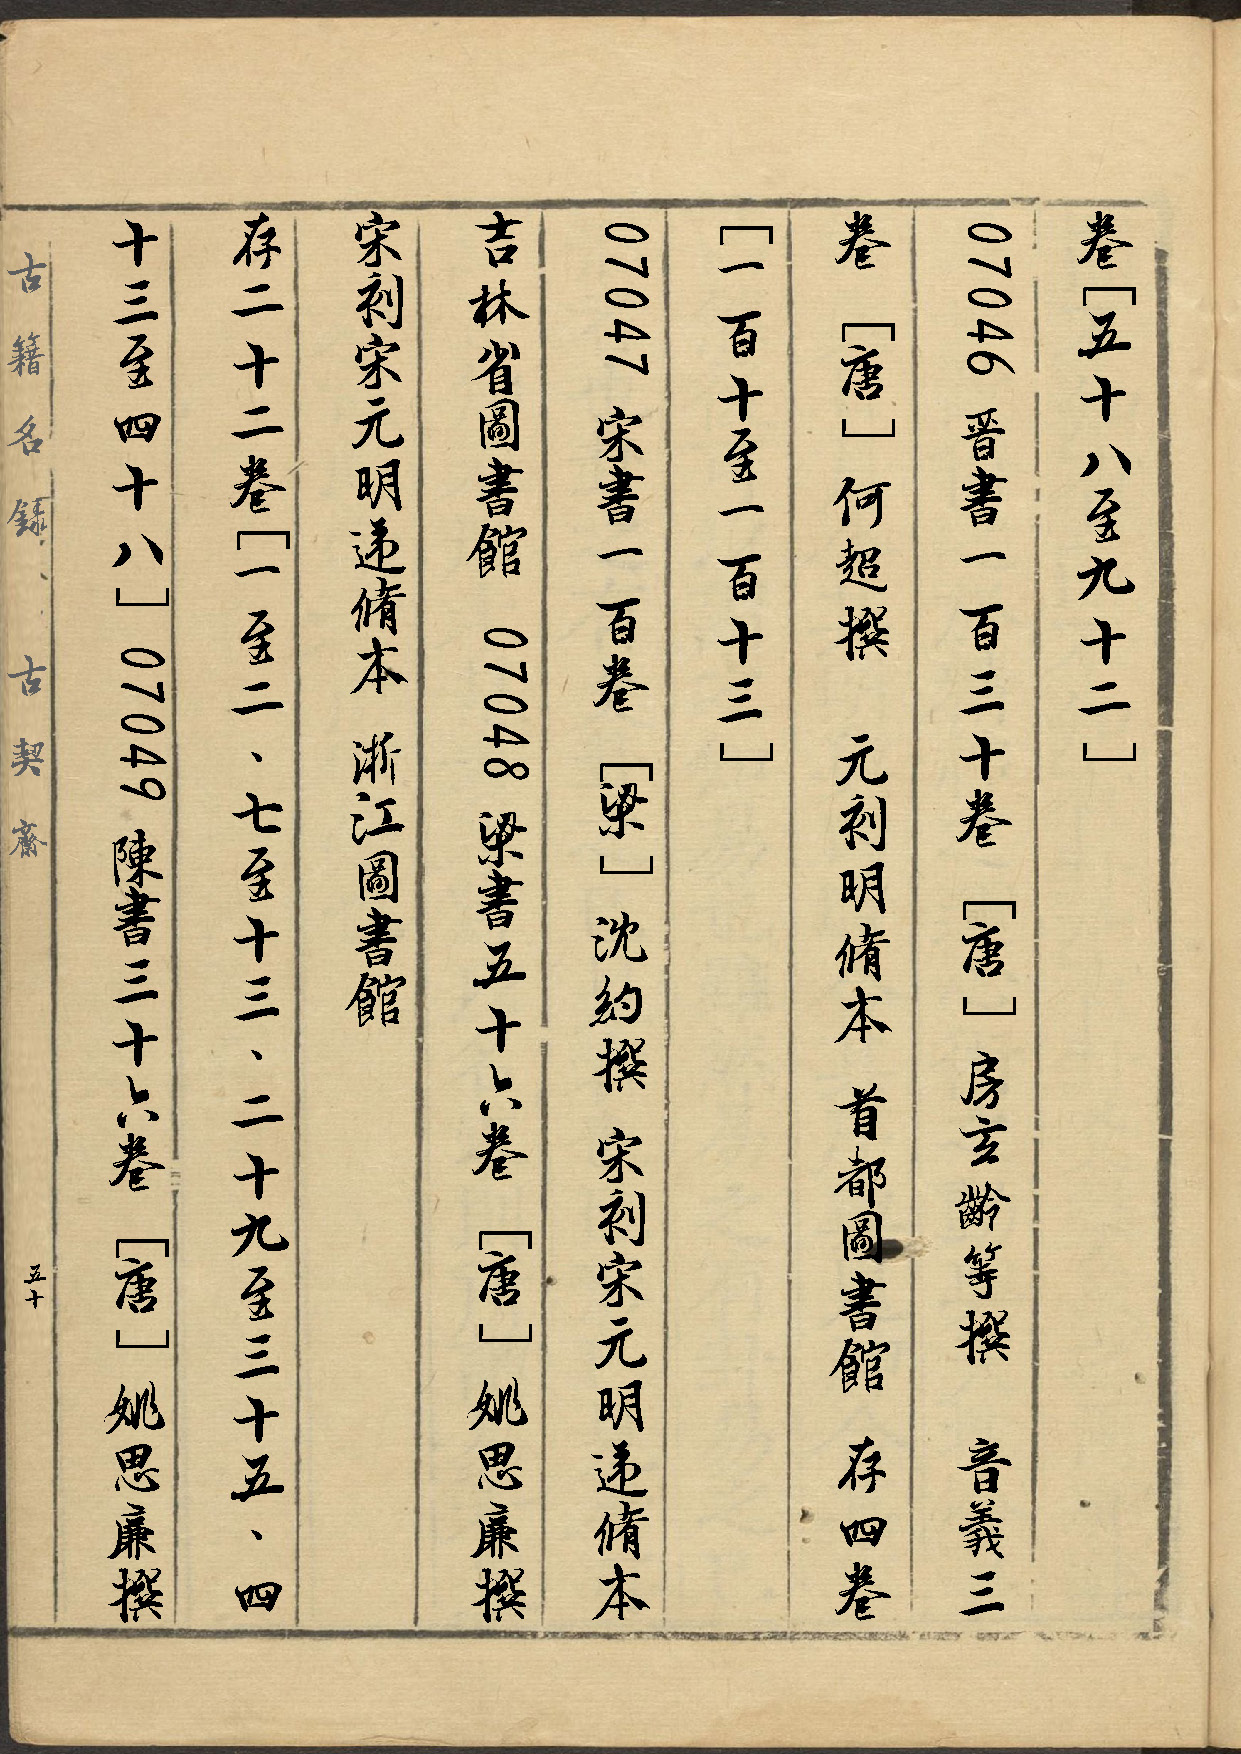 卷［五十八至九十二］
07046 晋書一百三十卷 ［唐］房玄齡等撰 音義三
卷 ［唐］何超撰 元刻明脩本 首都圖書館 存四卷
［一百十至一百十三］
07047 宋書一百卷 ［梁］沈約撰 宋刻宋元明递脩本
吉林省圖書館 07048 梁書五十六卷 ［唐］姚思廉撰
宋刻宋元明递脩本 浙江圖書館
存二十二卷［一至二、七至十三、二十九至三十五、四
十三至四十八］07049 陳書三十六卷 ［唐］姚思廉撰
古籍名錄、古契齋
五十